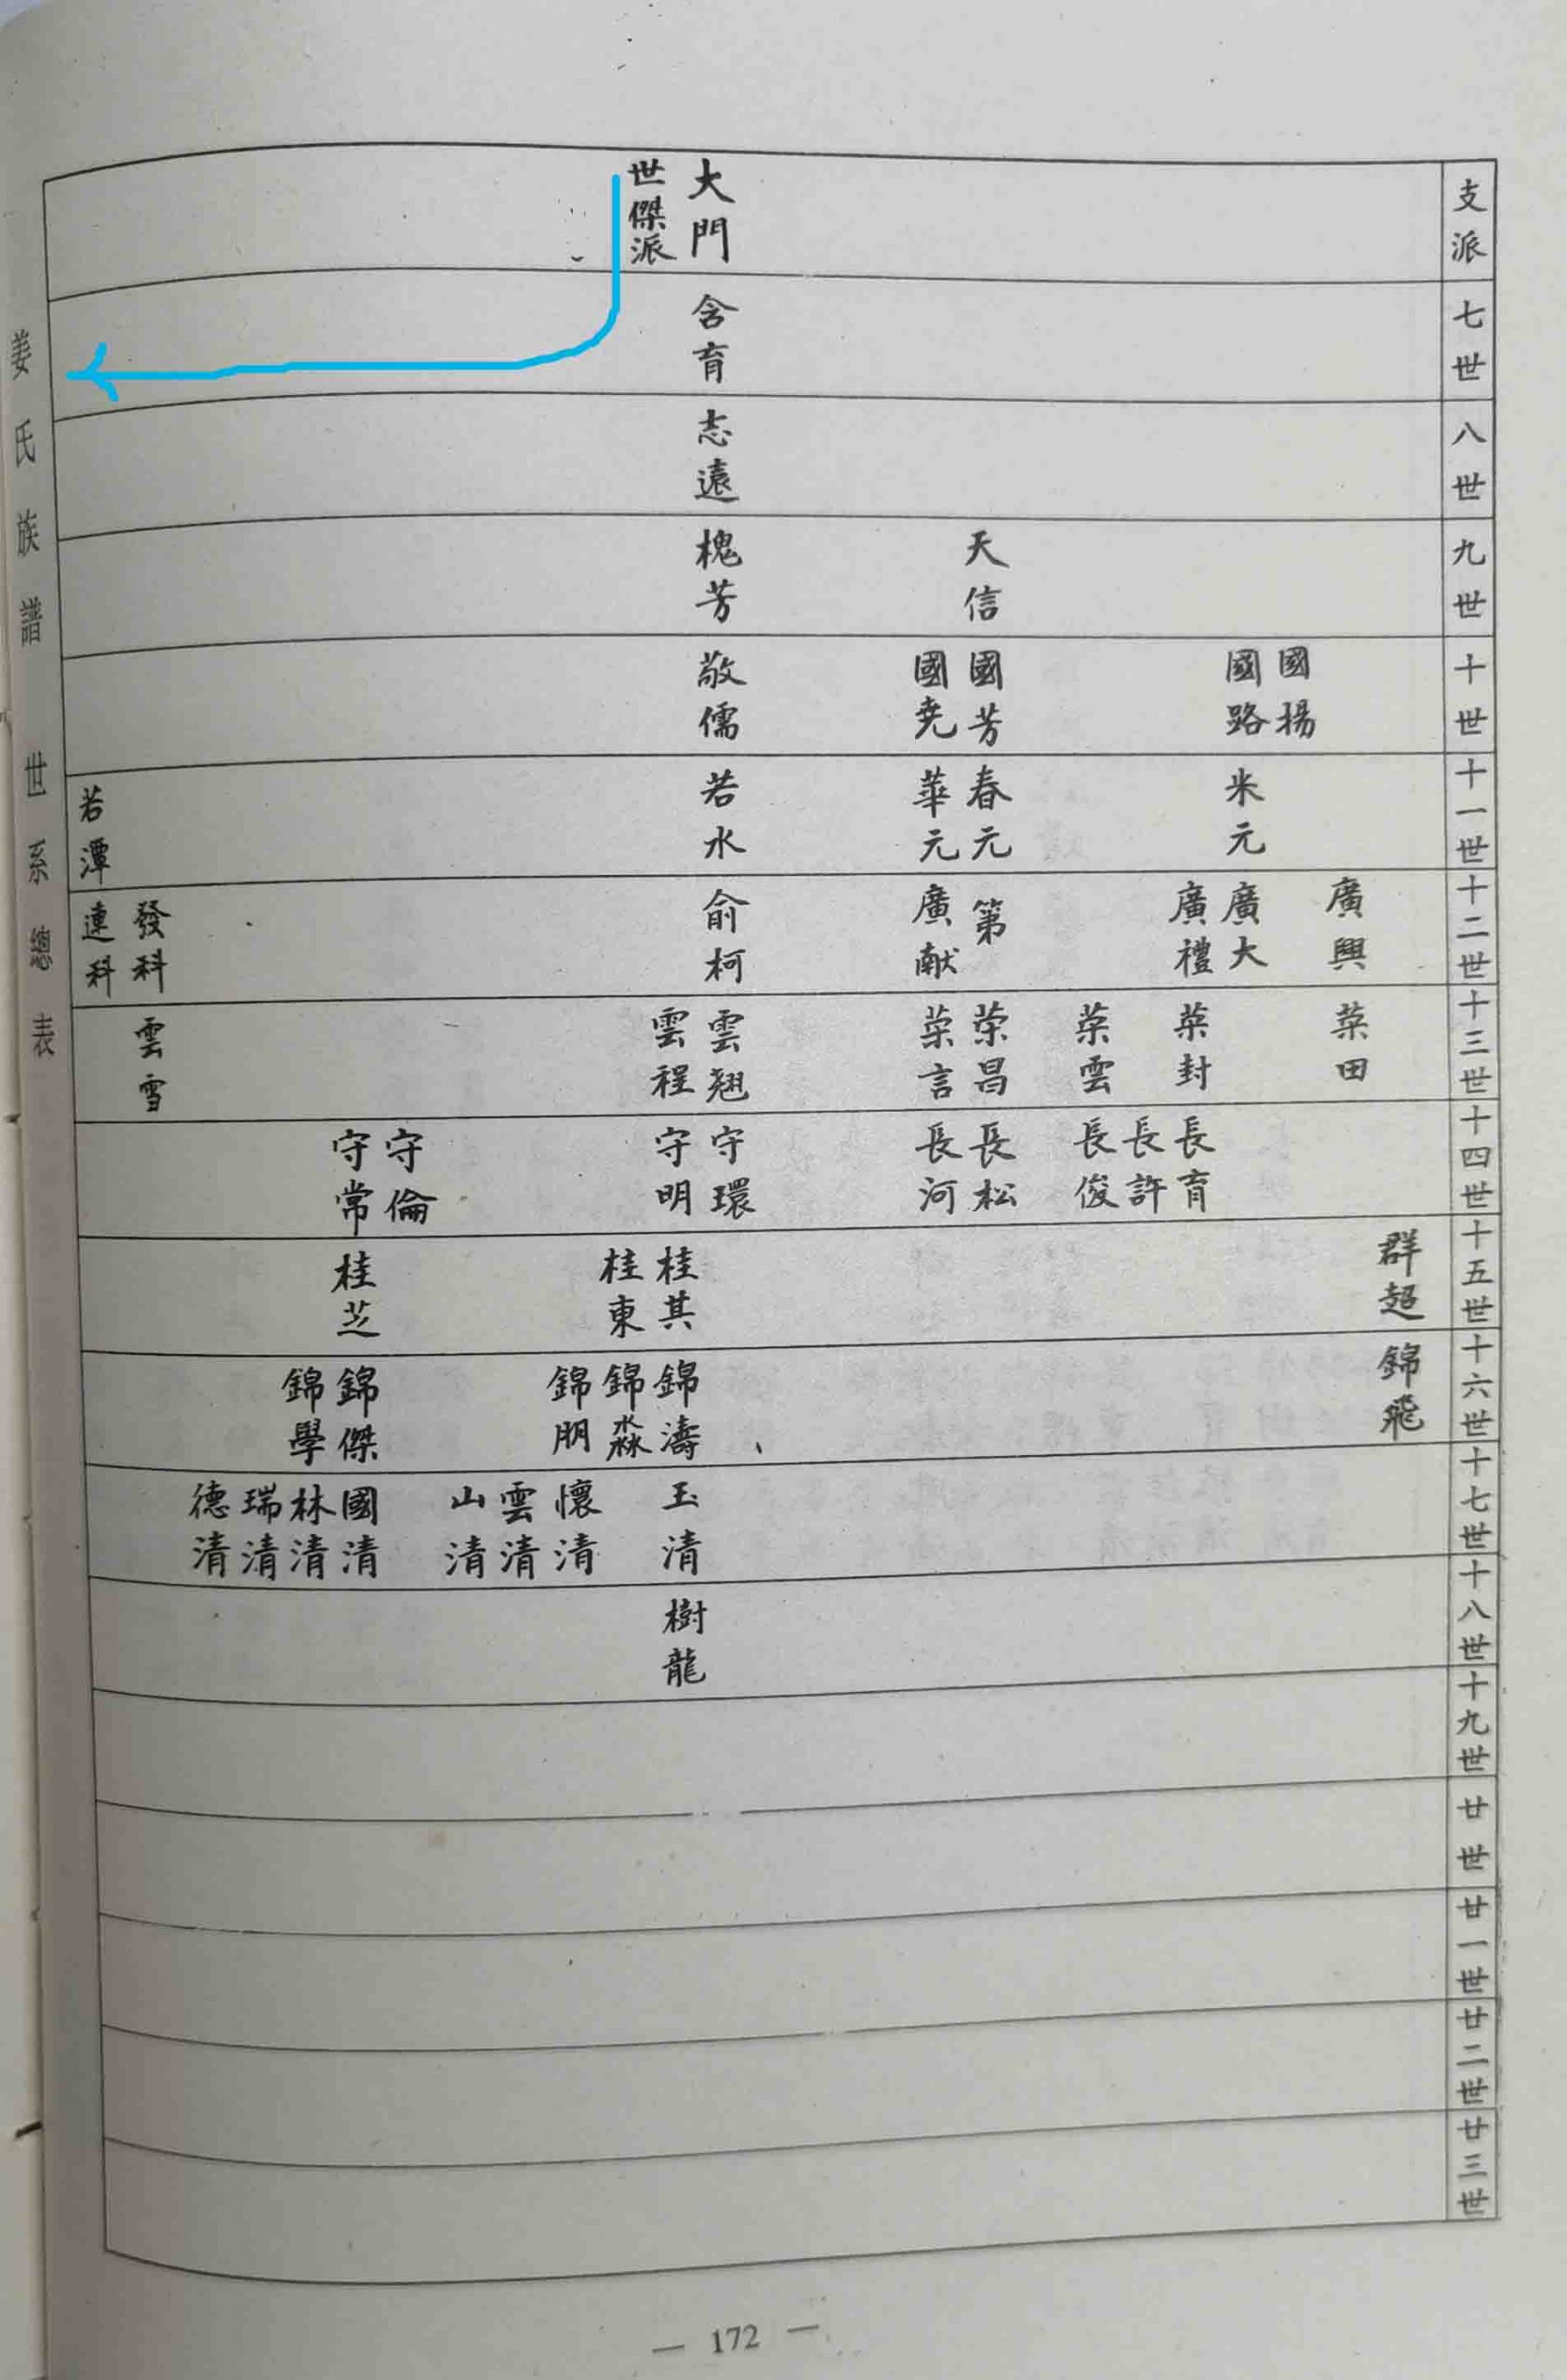 支派 大門 世傑派
七世 含育
八世 志遠
九世 天信 槐芳
十世 國揚 國路 國芳 國尭 敬儒
十一世 米元 春元 華元 若水 若潭
十二世 廣興 廣大 廣禮 第 廣献 俞柯 發科 連科
十三世 菜田 菜封 菜雲 荣昌 菜言 雲翹 雲程 雲雪
十四世 長育 長許 長俊 長松 長河 守環 守明 守倫 守常
十五世 群超 桂其 桂東 桂芝
十六世 錦飛 錦濤 錦淼 錦朋 錦傑 錦學
十七世 玉清 懷清 雲清 山清 國清 林清 瑞清 德清
十八世 樹龍
十九世
廿世
廿一世
廿二世
廿三世
姜氏族譜 世系總表
— 172 —